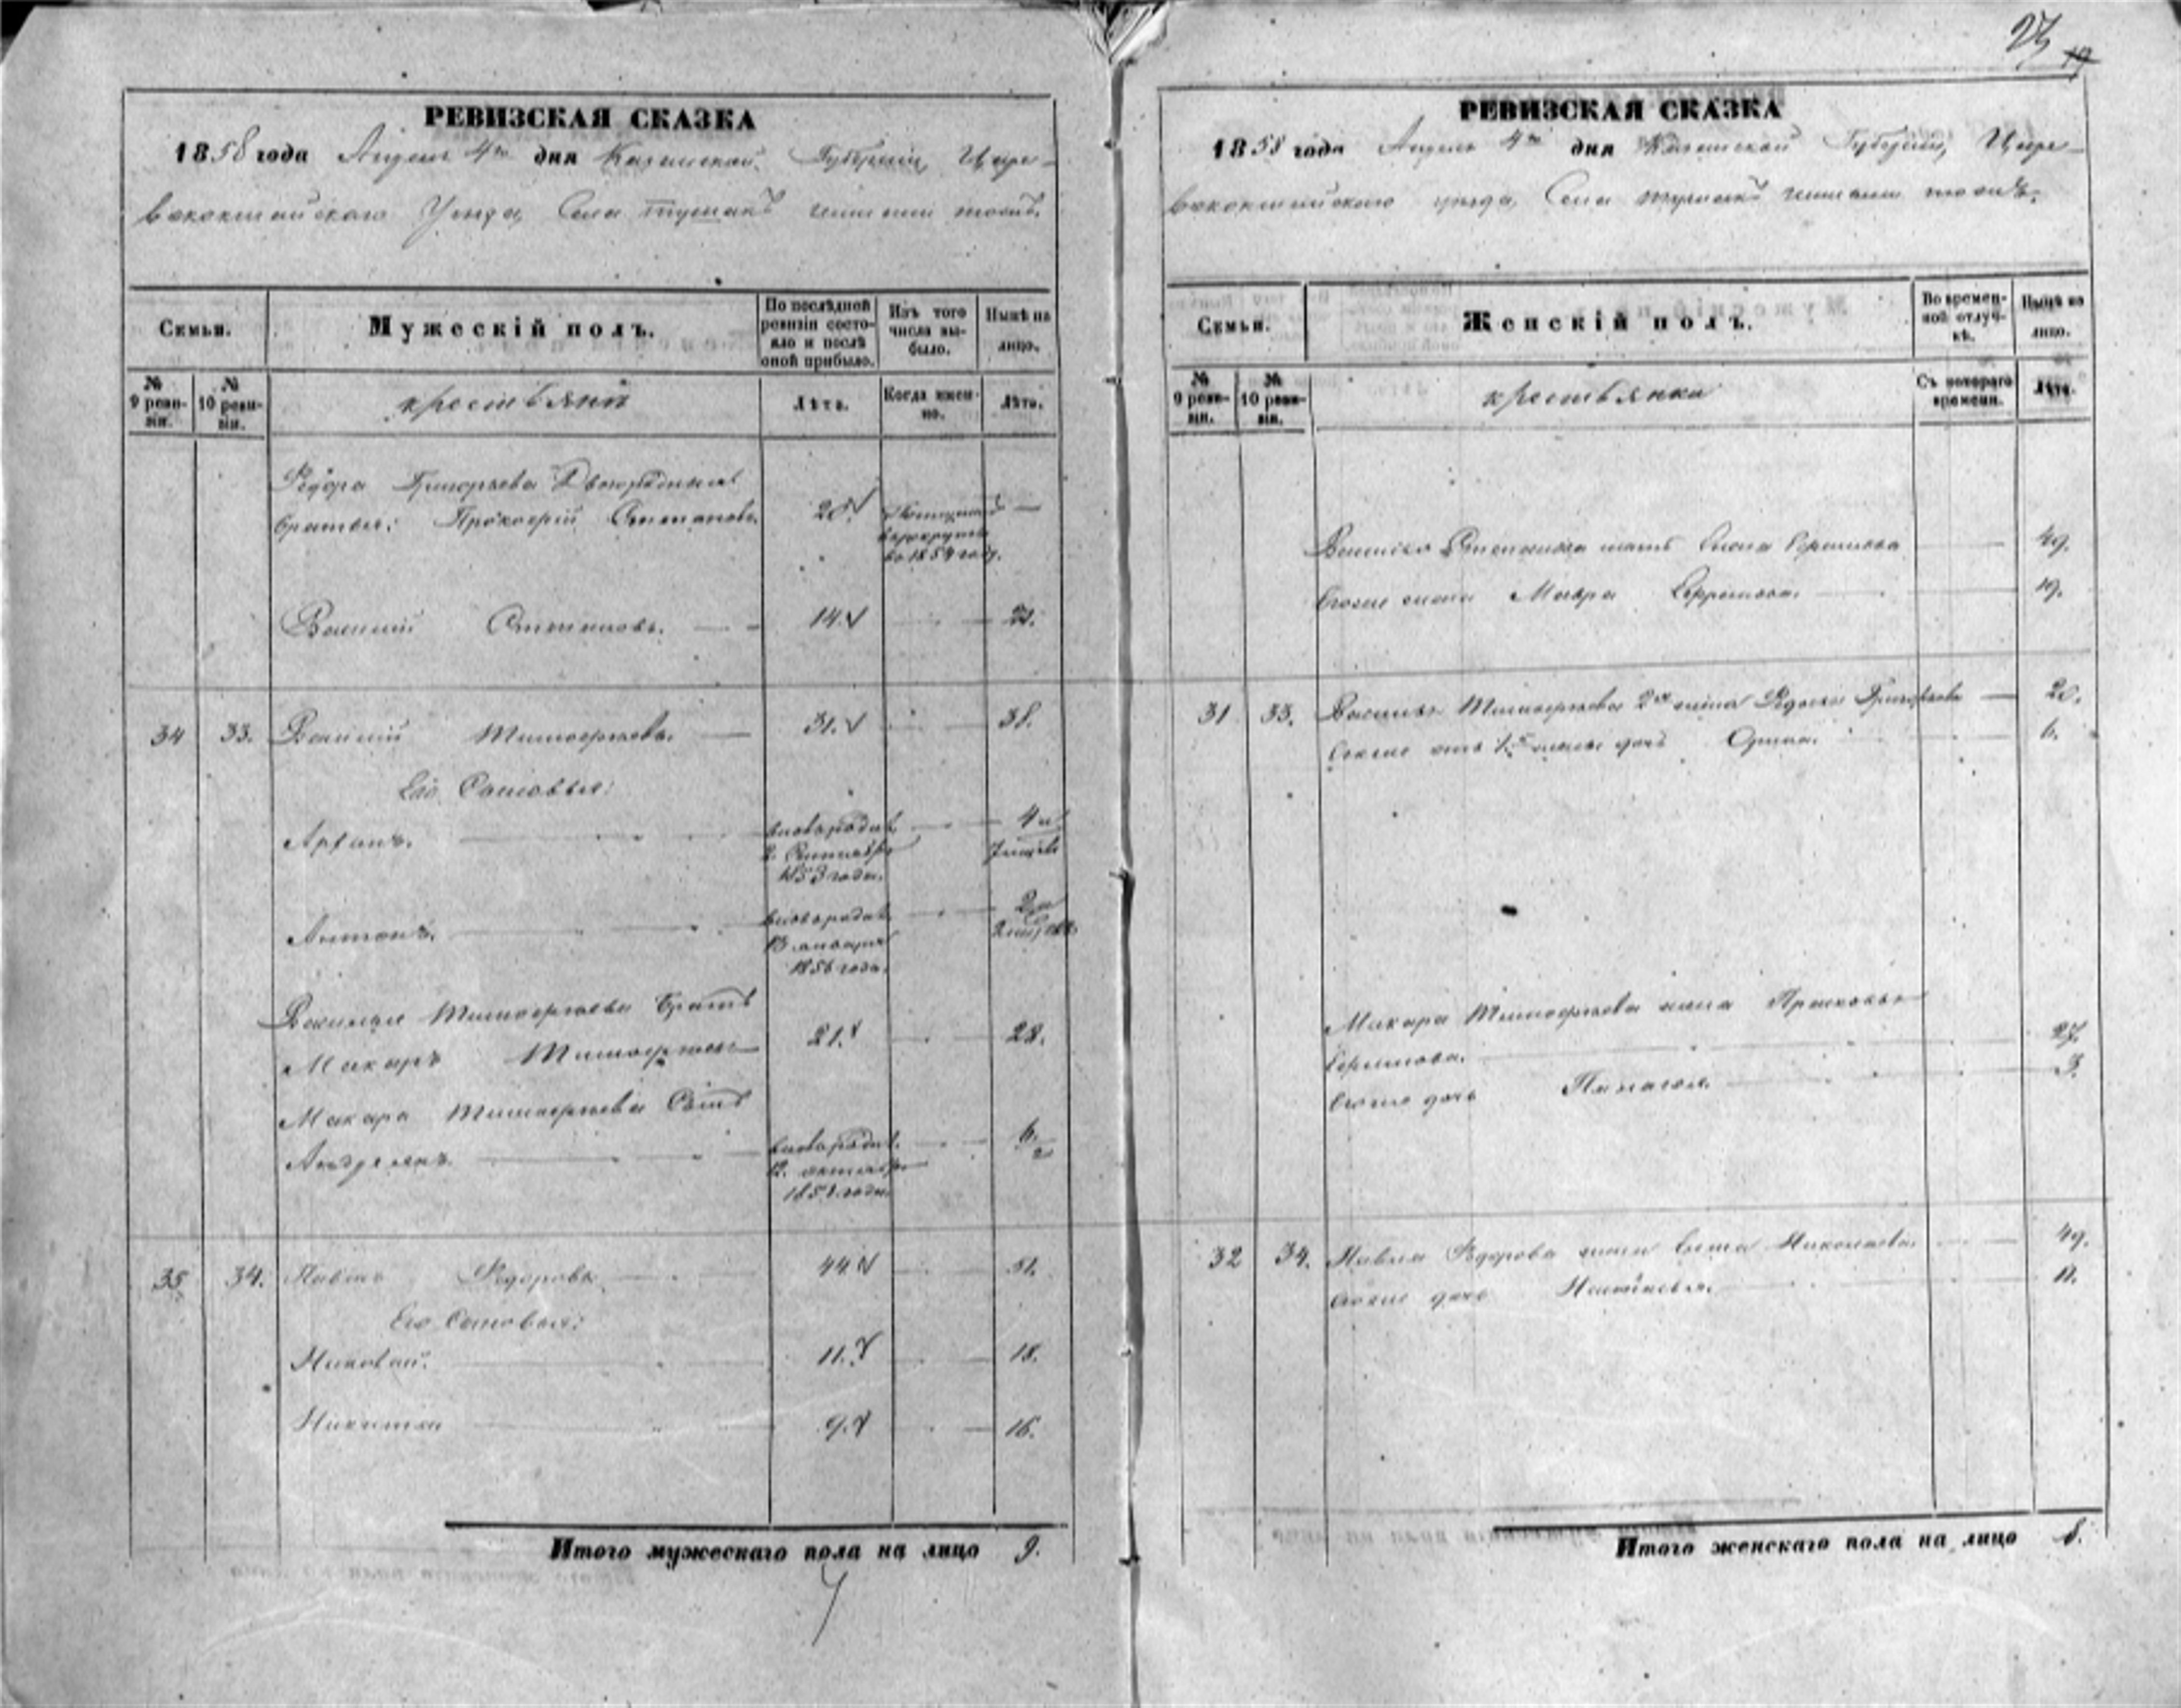 23
19
РЕВИЗСКАЯ СКАЗКА
1858 года Апреля 4го дня Казанской Губернии, Царе-
вококшайского Уезда, Села
Семьи.
Мужескій полъ.
По послѣдней ревизіи состо-
яло и послѣ
оной прибыло.
Изъ того
числа вы-
было.
Нынѣ на
лицо.
№
9 реви-
зіи.
№
10 реви-
зіи.
крестьяни
Лѣта.
Когда имен-
но.
Лѣта.
Федора Григорьева Двоюродныя
братья: Прокофий Степановъ 20.
в рекруты
во 1854 году.
Василий Степановъ. 14. 21.
34 33. Василий Тимофеевъ. 31. 38.
Его Сыновья:
новорожд. 4 и
7 месяцев
1853 года.
Антонъ. новорожд. 2 и
13 января 2 месяца
1856 года.
Василия Тимофеева братъ
Макаръ Тимофеевъ 21. 28.
Макара Тимофеева Сынъ
Андреянъ новорожд. 6.
12. октября
35 34. Павелъ Федоровъ 44. 51.
Его Сыновья:
Николай. 11. 18.
Никита 9. 16.
Итого мужескаго пола на лицо 9.
РЕВИЗСКАЯ СКАЗКА
1858 года Апреля 4го дня Казанской Губернии, Царе-
вококшайского уезда, Села
Семьи.
Женскій полъ.
Во времен-
ной отлуч-
кѣ.
Нынѣ на
лицо.
№
9 реви-
зіи.
№
10 реви-
зіи.
крестьянка
Съ котораго
времени.
Лѣта.
Василья Степанова мать 49.
Его же жена Мавра 19.
31 33. Василья Тимофеева 2я жена Федосья Григорьева 20.
Его же отъ 1й жены дочь 6.
Макара Тимофеева жена Прасковья
Ефимова. 27.
Его же дочь Пелагея. 3.
32 34. Павла Федорова жена Николаева. 49.
Его же дочь Настасья. 11.
Итого женскаго пола на лицо 8.